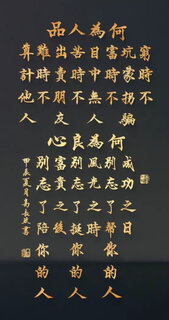 何為人品
窮時不
坑蒙拐騙
富時不
目中無人
苦時不
出賣朋友
難時不
算計他人
何為良心
成功之日
別忘了幫你的人
風光之時
別忘了挺你的人
富貴之後
別忘了陪你的人
甲辰夏月高長書